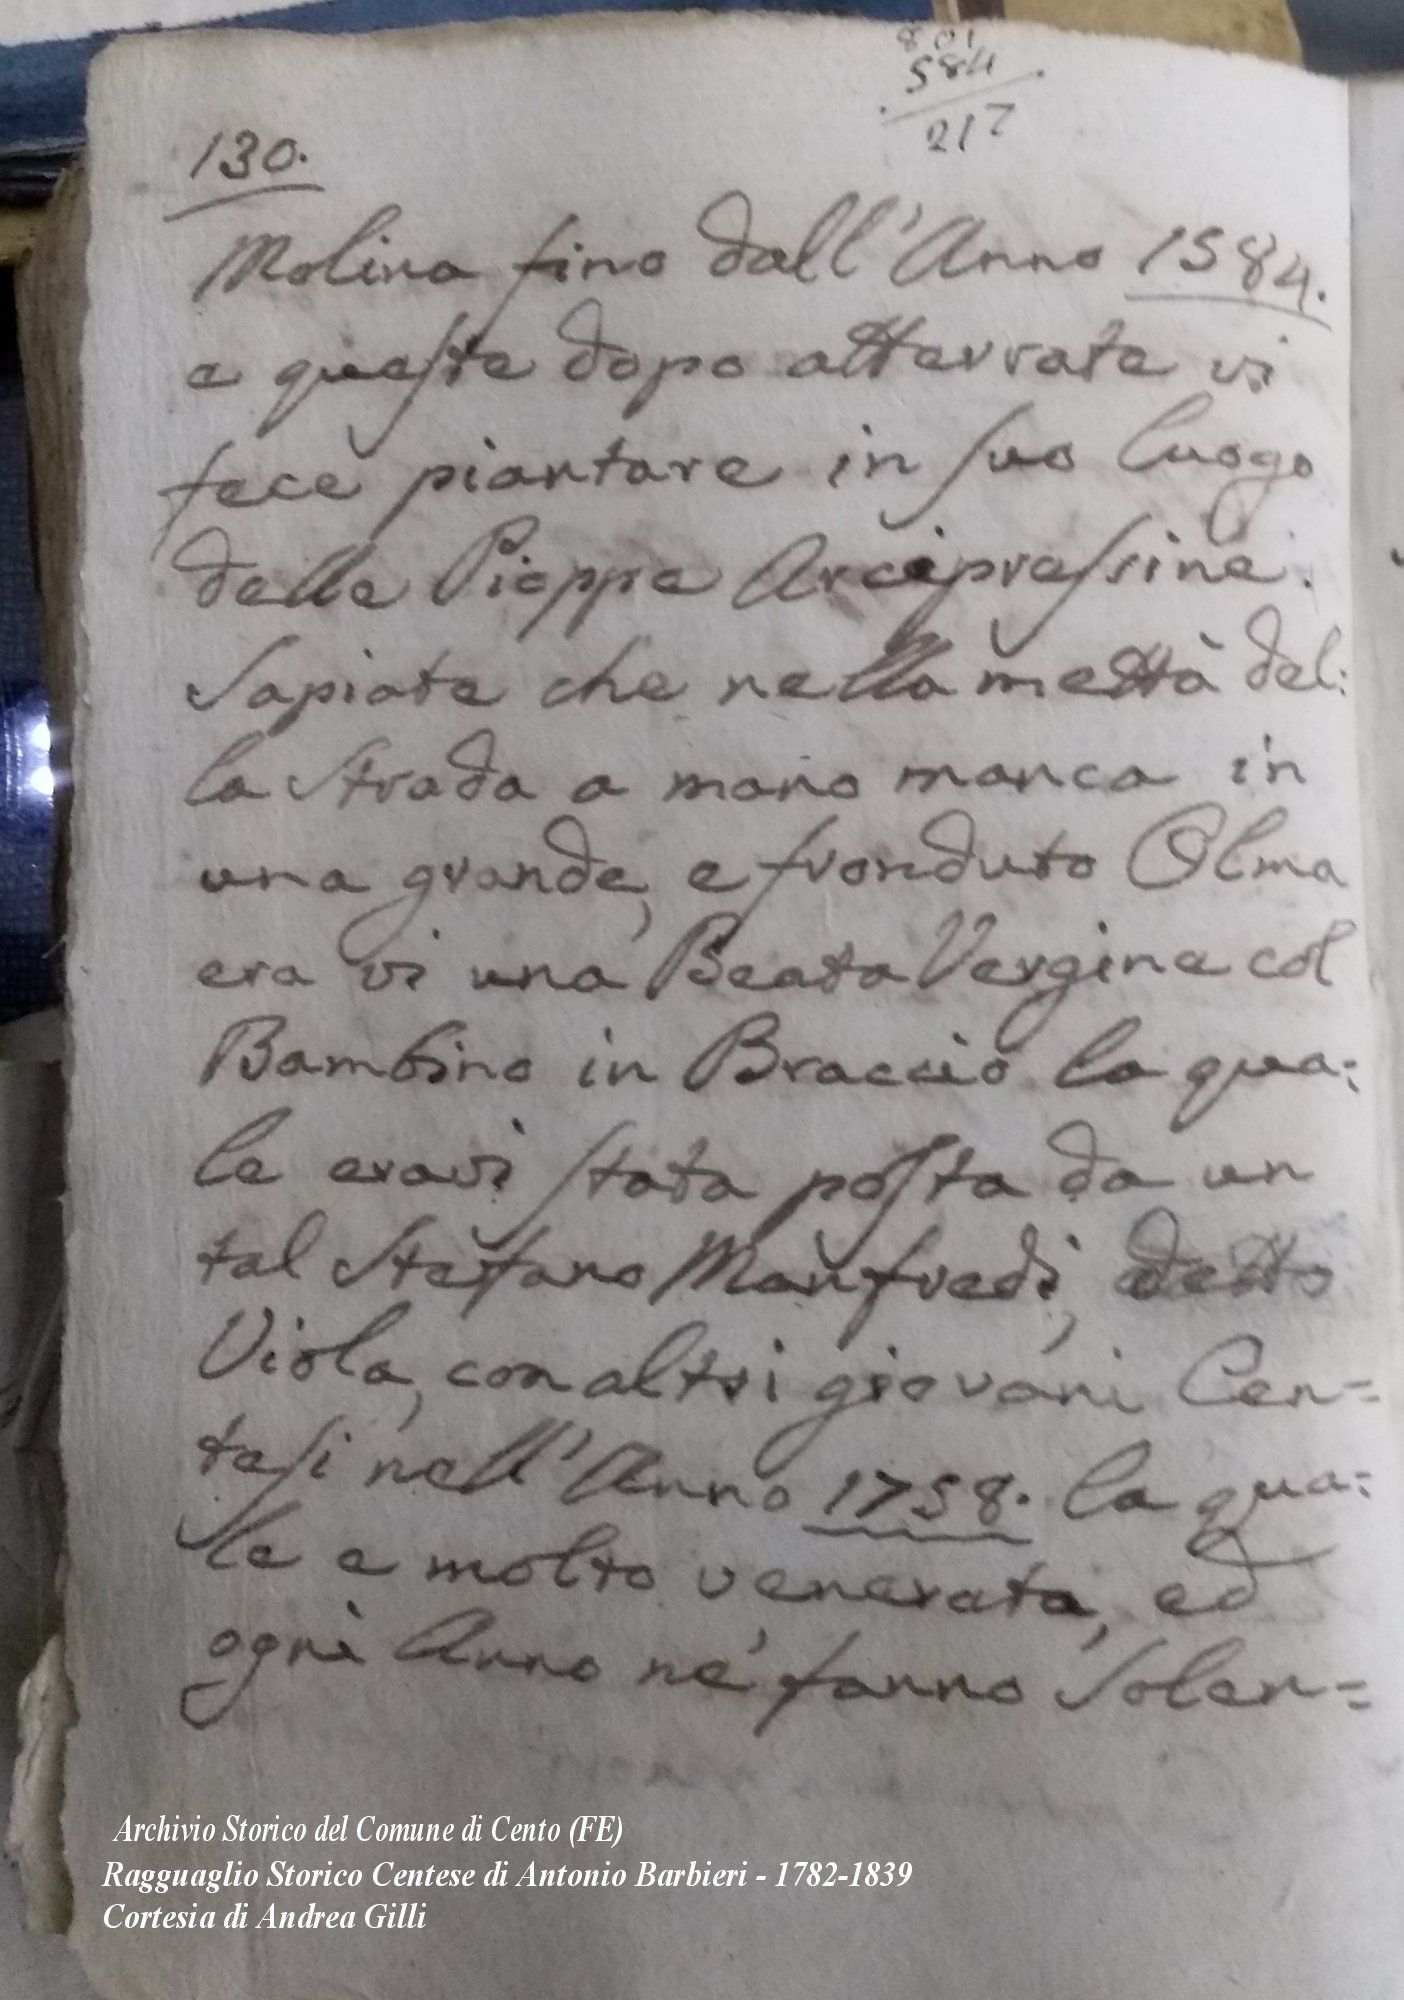 801
584
217
130.
Molina fino dall'Anno 1584.
e queste dopo atterrate vi
fece piantare in suo luogo
delle Pioppe Arcipressine.
Sapiate che nella mettà del:
la Strada a mano manca in
una grande, e fronduto Olma
era vi una Beata Vergine col
Bambino in Braccio la qua:
le eravi stata posta da un
tal Stefano Manfredi, detto
Viola, con altri giovani Cen=
tesi nell'Anno 1758. la qua:
le e molto venerata, ed
ogni Anno ne fanno Solen=
Archivio Storico del Comune di Cento (FE)
Ragguaglio Storico Centese di Antonio Barbieri - 1782-1839
Cortesia di Andrea Gilli